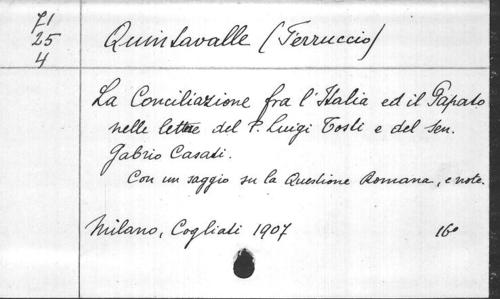 71
25
4
Quintavalle (Ferruccio)
La Conciliazione fra l'Italia ed il Papato
nelle lettere del P. Luigi Tosti e del Sen.
Gabrio Casati.
Con un saggio su la Questione Romana, e note.
Milano, Cogliati 1907 16°